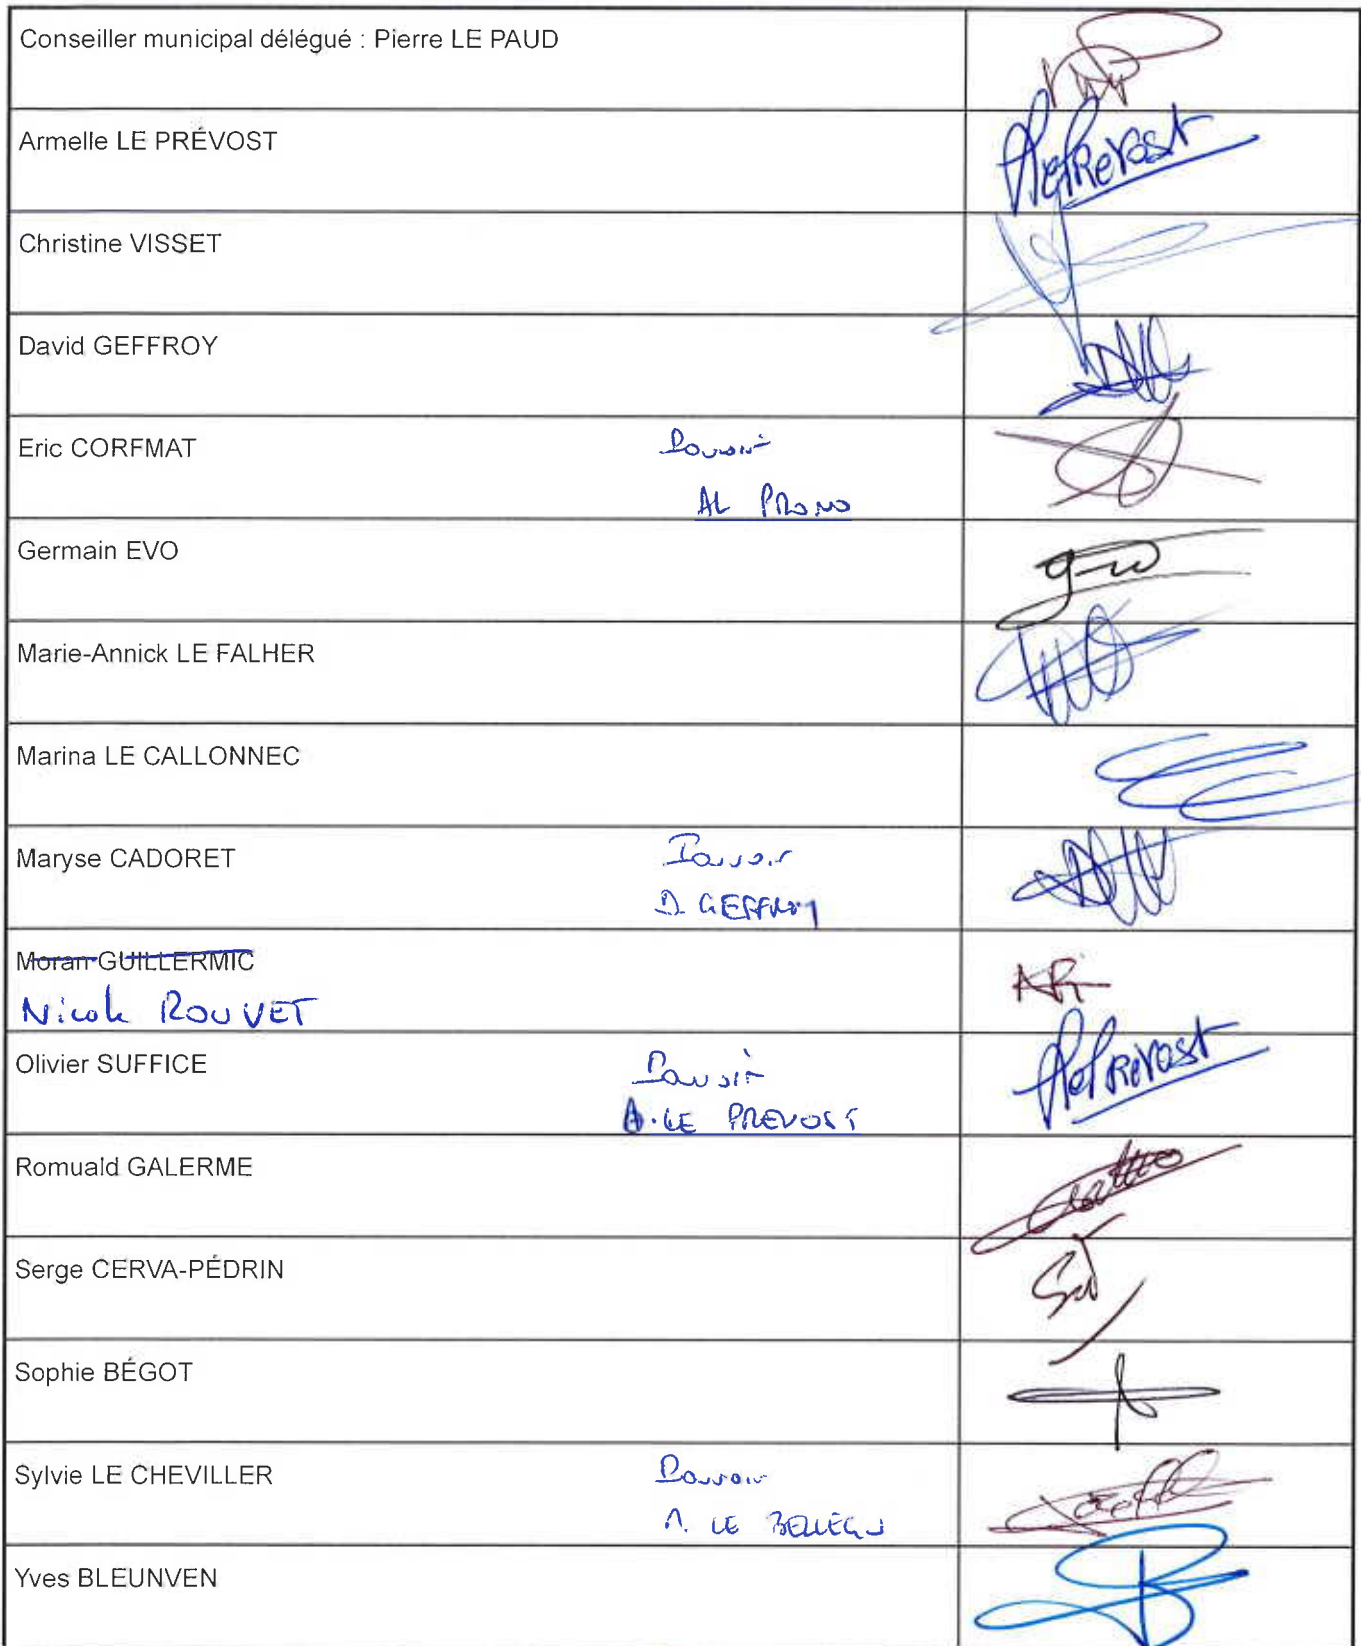 Conseiller municipal délégué : Pierre LE PAUD
Armelle LE PRÉVOST
LePrevost
Christine VISSET
David GEFFROY
Eric CORFMAT
Pouvoir
AL PRONO
Germain EVO
Marie-Annick LE FALHER
Marina LE CALLONNEC
Maryse CADORET
Pouvoir
D. GEFFROY
Moran GUILLERMIC
Nicole ROUVET
Olivier SUFFICE
Pouvoir
A. LE PREVOST
LePrevost
Romuald GALERME
Serge CERVA-PÉDRIN
Sophie BÉGOT
Sylvie LE CHEVILLER
Pouvoir
LE BELLÉGU
Yves BLEUNVEN